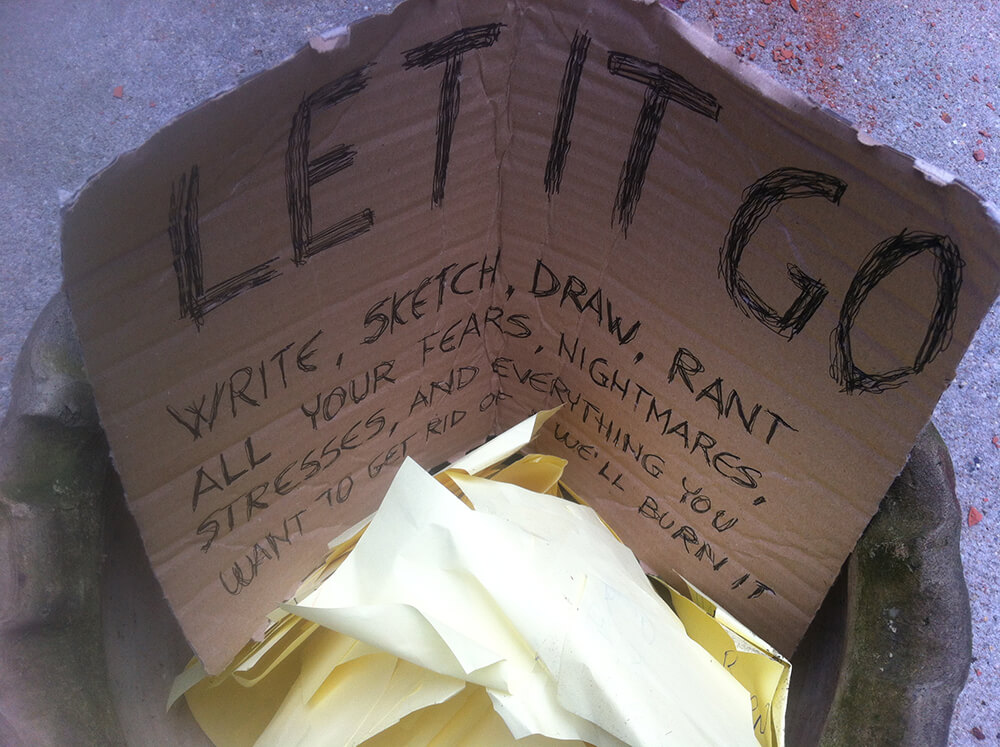 LET IT GO
WRITE, SKETCH, DRAW, RANT
ALL YOUR FEARS, NIGHTMARES,
STRESSES, AND EVERYTHING YOU
WANT TO GET RID OF WE'LL BURN IT